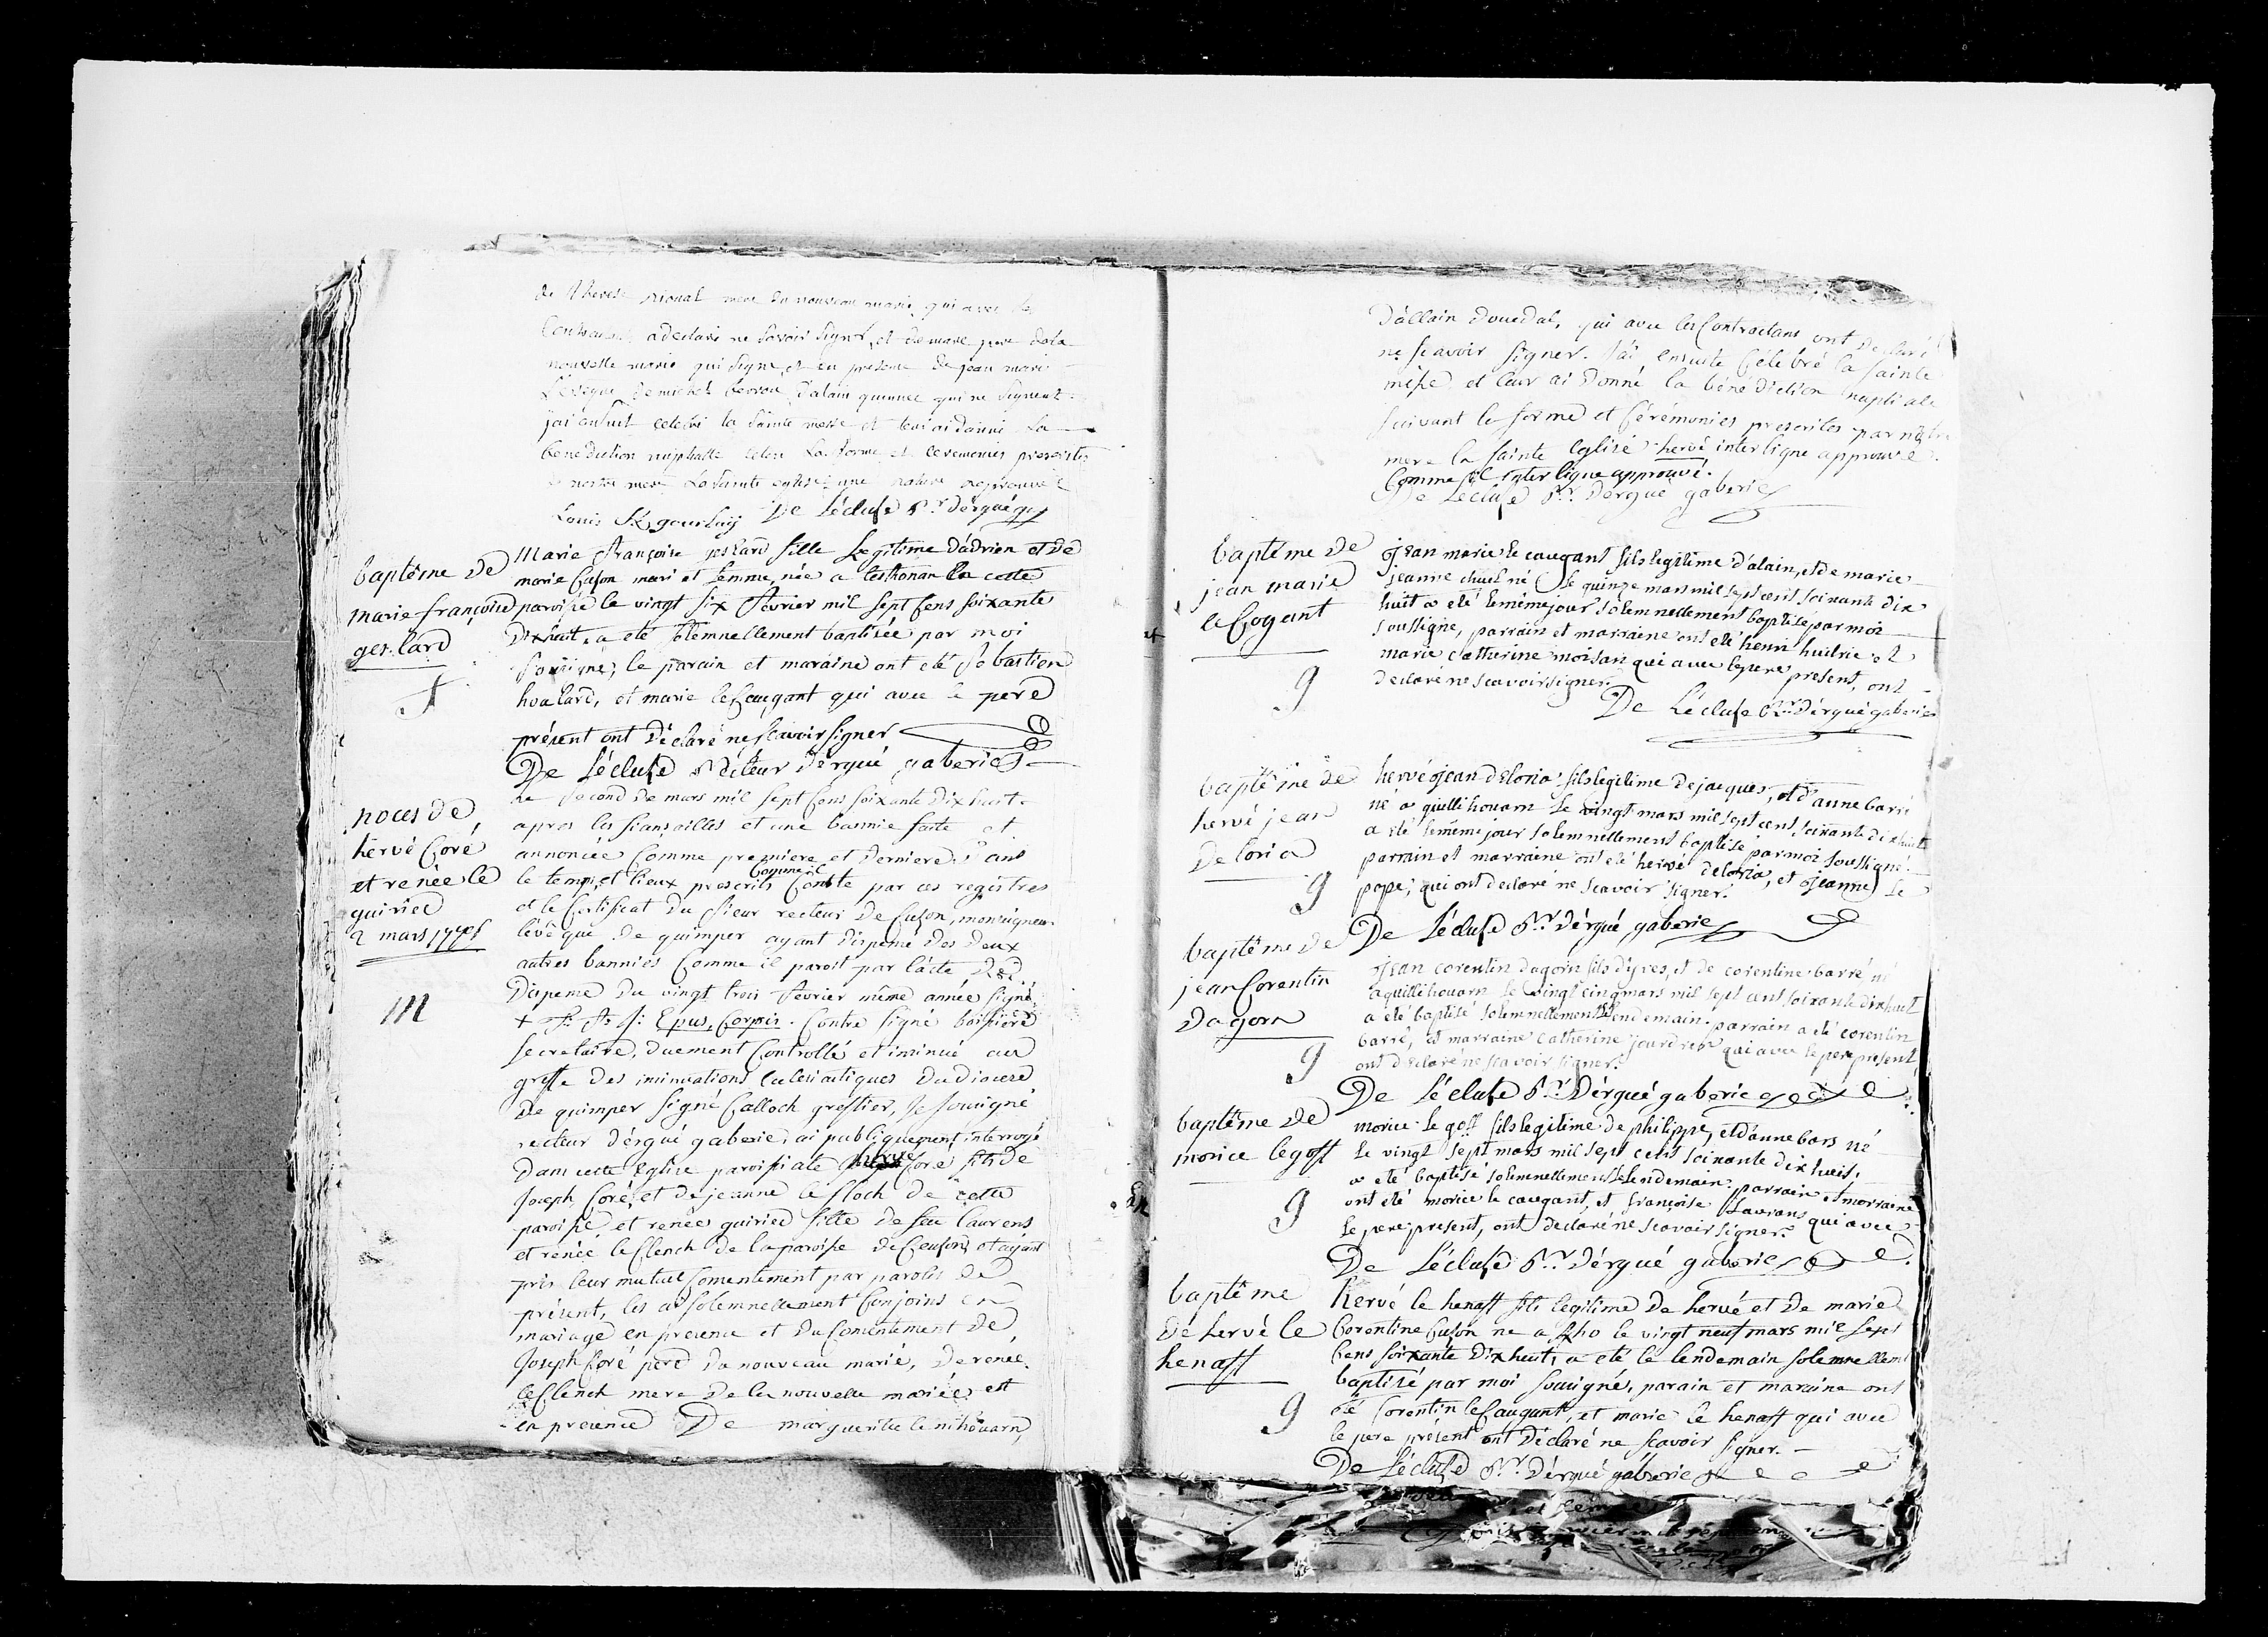 de therese rioual mere du nouveau marié, qui avec les
contractants a declaré ne savoir signer, et de marc pere de la
nouvelle mariée qui signe, et en presence de jean marie
de michel d'alain quennec qui ne signent.
j'ai ensuit celebré la sainte messe et leur ai donné la
benediction nuptialle selon la forme et ceremonies prescrites
notre mere la sainte eglise, une rature approuvé
Louis De Lécluse Rr. dérgué g.
baptême de
marie françoise
gestard
f
Marie françoise jestard fille légitime dadrien et de
marie Cuson mari et femme, née a Lesthonan en cette
paroisse le vingt six février mil sept Cens soixante
dixhuit, a eté solemnellement baptisée par moi
soussigné; le parain et maraine ont eté sebastien
huitard, et marie le Caugant qui avec le peré
présent ont déclaré ne scavoir signer
De Lécluse Récteur dérgué gaberic
noces de
hervé Coré
et renée le
quiriec
2 mars 1778
m
Le second de mars mil sept Cens soixante dixhuit.
apres les fiançailles et une bannie faite et
annoncée Comme premiere et derniere, sans
le temps, et lieux prescrits Comme il Conste par ces registres
et le Certificat du sieur recteur de Cuzon, monseigneur
lévêque de quimper ayant dispensé des deux
autres bannies Comme il paroit par lacte de
dispense du vingt trois février même année signé
+ Epus, Corpis. Contre signé boissiere
secretaire, duement Controllé et insinué au
greffe des insinuations Eclesiastiques du diocese
de quimper signé Calloch greffier, Je soussigné
recteur dérgué gaberic, ai publiquement interrogé
dans cette église paroissiale hervé Coré fils de
Joseph Coré, et de jeanne le floch de cette
paroisse et renée quiriec fille de feu laurens
et renée le Clench de la paroisse de Ceuson, et ayant
pris leur mutuel Consentement par paroles de
présent, les ai solemnellement Conjoins en
mariage en presence et du Consentement de
Joseph Coré pere du nouveau marié, de renée
le Clench mere de la nouvelle mariée, est
en presence De marguerite le nihouarn,
d'allain douerdal, qui avec les Contractans ont déclaré
ne scavoir signer. J'ai ensuite Celebré la sainte
messe et leur ai donné la bénédiction nuptiale
suivant la forme et Cérémonies prescrites par nôtre
mere la sainte Eglise hervé interligne approuvé.
Comme il interligne approuvé.
De Lécluse Rr. dérgué gaberic
baptême de
jean marie
le Cogant
g
jean marie le caugant fils legitime d'alain, et de marie
jeanne né le quinze mars mil sept cent soixante dix
huit a eté le même jour solemnellement baptisé par moi
soussigné, parrain et marraine ont eté henri et
marie catherine moisan qui avec le pere present, ont
declaré ne scavoir signer.
De Lécluse Rr. dérgué gaberic
baptême de
hervé jean
de loria
g
hervé jean deloria fils legitime de jacques, et d'anne barré
né a quillihouarn le vingt mars mil sept cent soixante dixhuit
a eté le même jour solemnellement baptisé par moi soussigné.
parrain et marraine ont eté hervé deloria, et jeanne le
pape, qui ont declaré ne scavoir signer.
De Lécluse Rr. dérgué gaberic
baptême de
jean Corentin
dagorn
g
jean corentin dagorn fils d'yves, et de corentine barré né
a quillihouarn le vingt cinq mars mil sept cent soixante dixhuit
a été baptisé solemnellement le lendemain. parrain a eté corentin
barré, et marraine catherine jourdren qui avec le pere present
ont declaré ne scavoir signer.
De Lécluse Rr. dérgué gaberic
baptême de
morice le goff
g
morice le goff fils legitime de philippe, et d'anne bars né
le vingt sept mars mil sept cent soixante dixhuit,
a eté baptisé solemnellement le lendemain. parrain et marraine
ont été morice le caugant, et françoise Laurans qui avec
le pere present, ont declaré ne scavoir signer.
De Lécluse Rr. dérgué gaberic
baptême
de hervé le
henaff
g
hervé le henaff fils legitime de hervé et de marie
Corentine Cuson né a le vingt neuf mars mil sept
Cens soixante dixhuit, a eté le lendemain solemnellem
baptisé par moi soussigné, parain et maraine ont
eté Corentin le Caugant, et marie le henaff qui avec
le pere présent ont déclaré ne scavoir signer.
De Lécluse Rr. dérgué gabéric